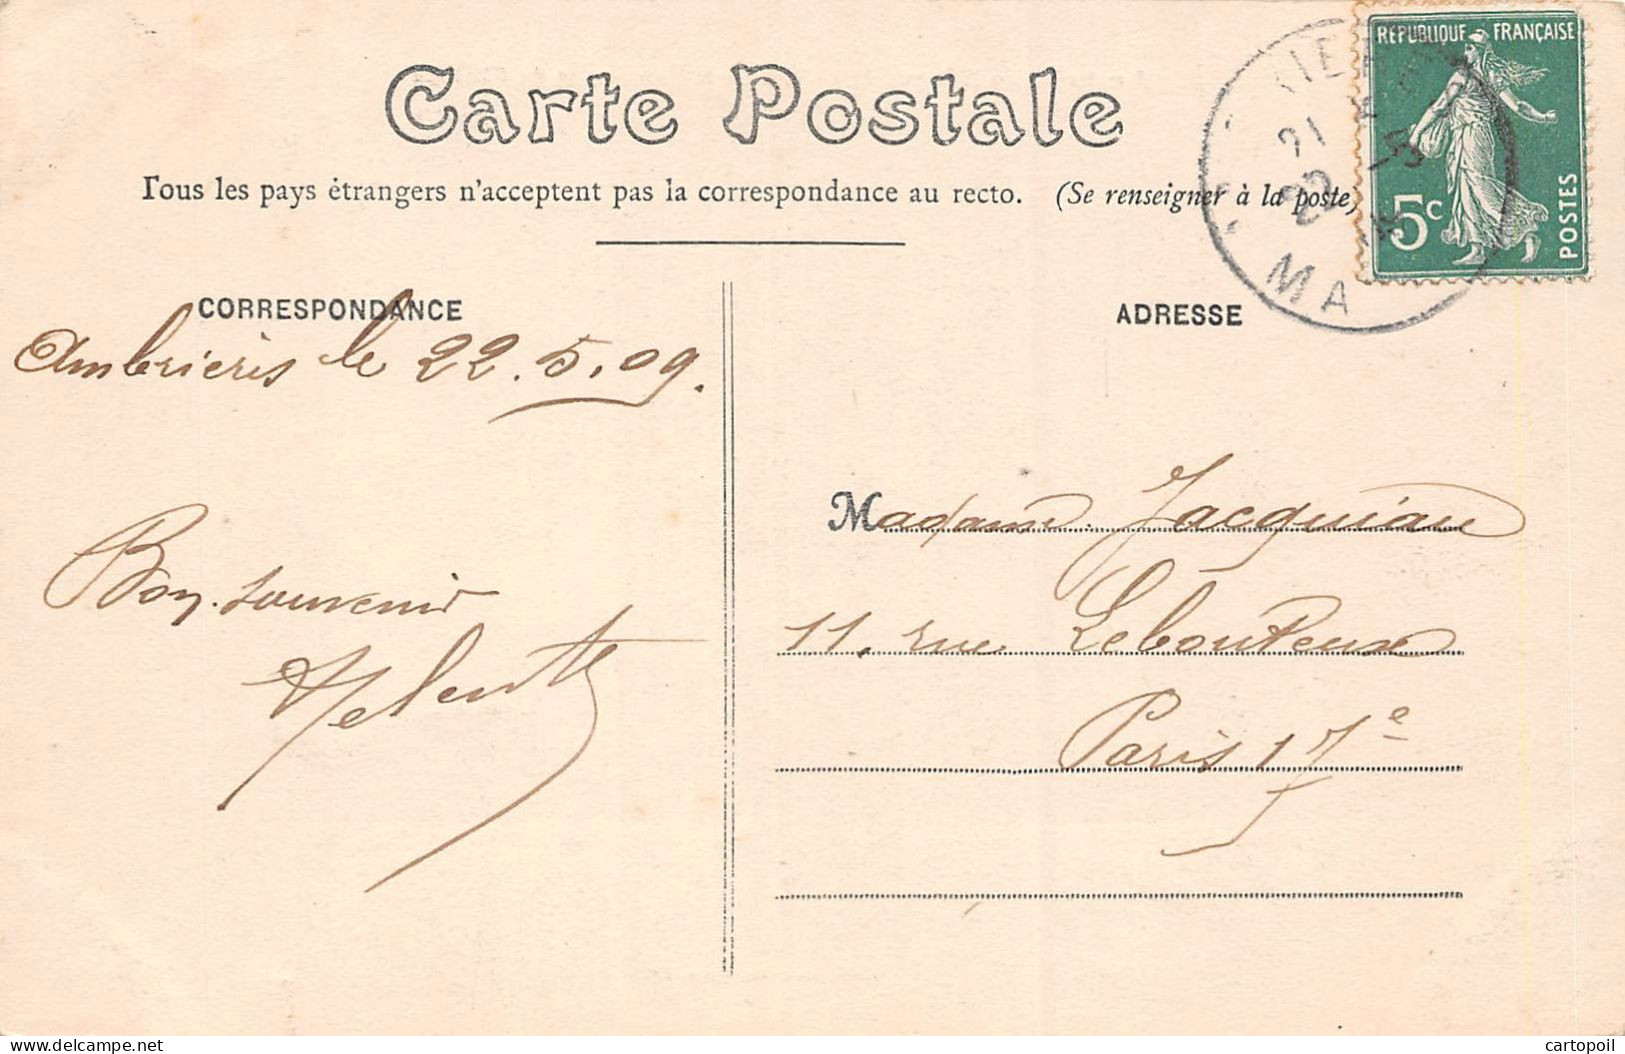 Carte Postale
Tous les pays étrangers n'acceptent pas la correspondance au recto. (Se renseigner à la poste)
RÉPUBLIQUE FRANÇAISE
5c
POSTES
21
22 -5
MA
CORRESPONDANCE
Ambrieris le 22.5.09.
Bon souvenir
ADRESSE
Madame Jacquiau
11, rue Lebouteux
Paris 17e
delcampe.net
cartopoil